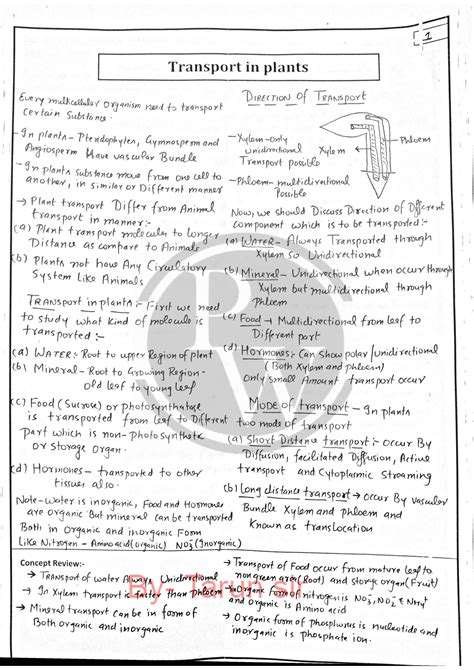 1
Transport in plants
Every multicellular organism need to transport
certain substance.
-In plants- Pteridophytes, Gymnosperm and
Angiosperm Have vascular Bundle
-In plants substance move from one cell to
another, in similar or Different manner
→ Plant transport Differ from Animal
transport in manner:-
(a) Plant transport molecules to longer
Distance as compare to Animals
(b) Plants not have Any Circulatory
System Like Animals
TRANSPORT in plants:- First we need
to study what kind of molecule is
transported :-
(a) WATER:- Root to upper Region of plant
(b) Mineral- Root to Growing Region-
old leaf to young leaf
(c) Food (Sucrose) or photosynthatage
is transported from leaf to Different
Part which is non-photosynthetic
or storage organ.
(d) Hormones- transported to other
tissues also.
Note- Water is inorganic, Food and Hormones
are organic But mineral can be transported
Both in organic and inorganic Form
Like Nitrogen - Amino acid(organic) NO3⁻(Inorganic)
DIRECTION OF TRANSPORT
-Xylem-only
unidirectional
Transport possible
-Phloem- multidirectional
Possible
Xylem
Phloem
Now, we should Discuss Direction of Different
component which is to be transported:-
(a) WATER- Always Transported through
Xylem so Unidirectional
(b) Mineral- Unidirectional when occur through
Xylem but multidirectional through
Phloem
(c) Food → Multidirectional from leaf to
Different part
(d) Hormones: Can show polar/unidirectional
(Both Xylem and phloem)
Only small Amount transport occur
MODE of transport - In plants
two mode of transport
(a) Short Distance transport:- occur By
Diffusion, facilitated Diffusion, Active
transport and Cytoplasmic Streaming
(b) Long distance transport → occur By Vascular
Bundle Xylem and phloem and
Known as translocation
Concept Review:-
→ TRANSPORT of water Always Unidirectional
→ In Xylem transport is faster than phloem
→ Mineral transport can be in form of
Both organic and inorganic
→ Transport of Food occur from mature leaf to
non green area(Root) and storage organ(Fruit)
→ Organic form of nitrogen is NO2⁻, NO3⁻ & NH4⁺
and organic is Amino acid
→ Organic form of phosphorus is nucleotide and
inorganic is phosphate ion.
By: Tarun sir
PW